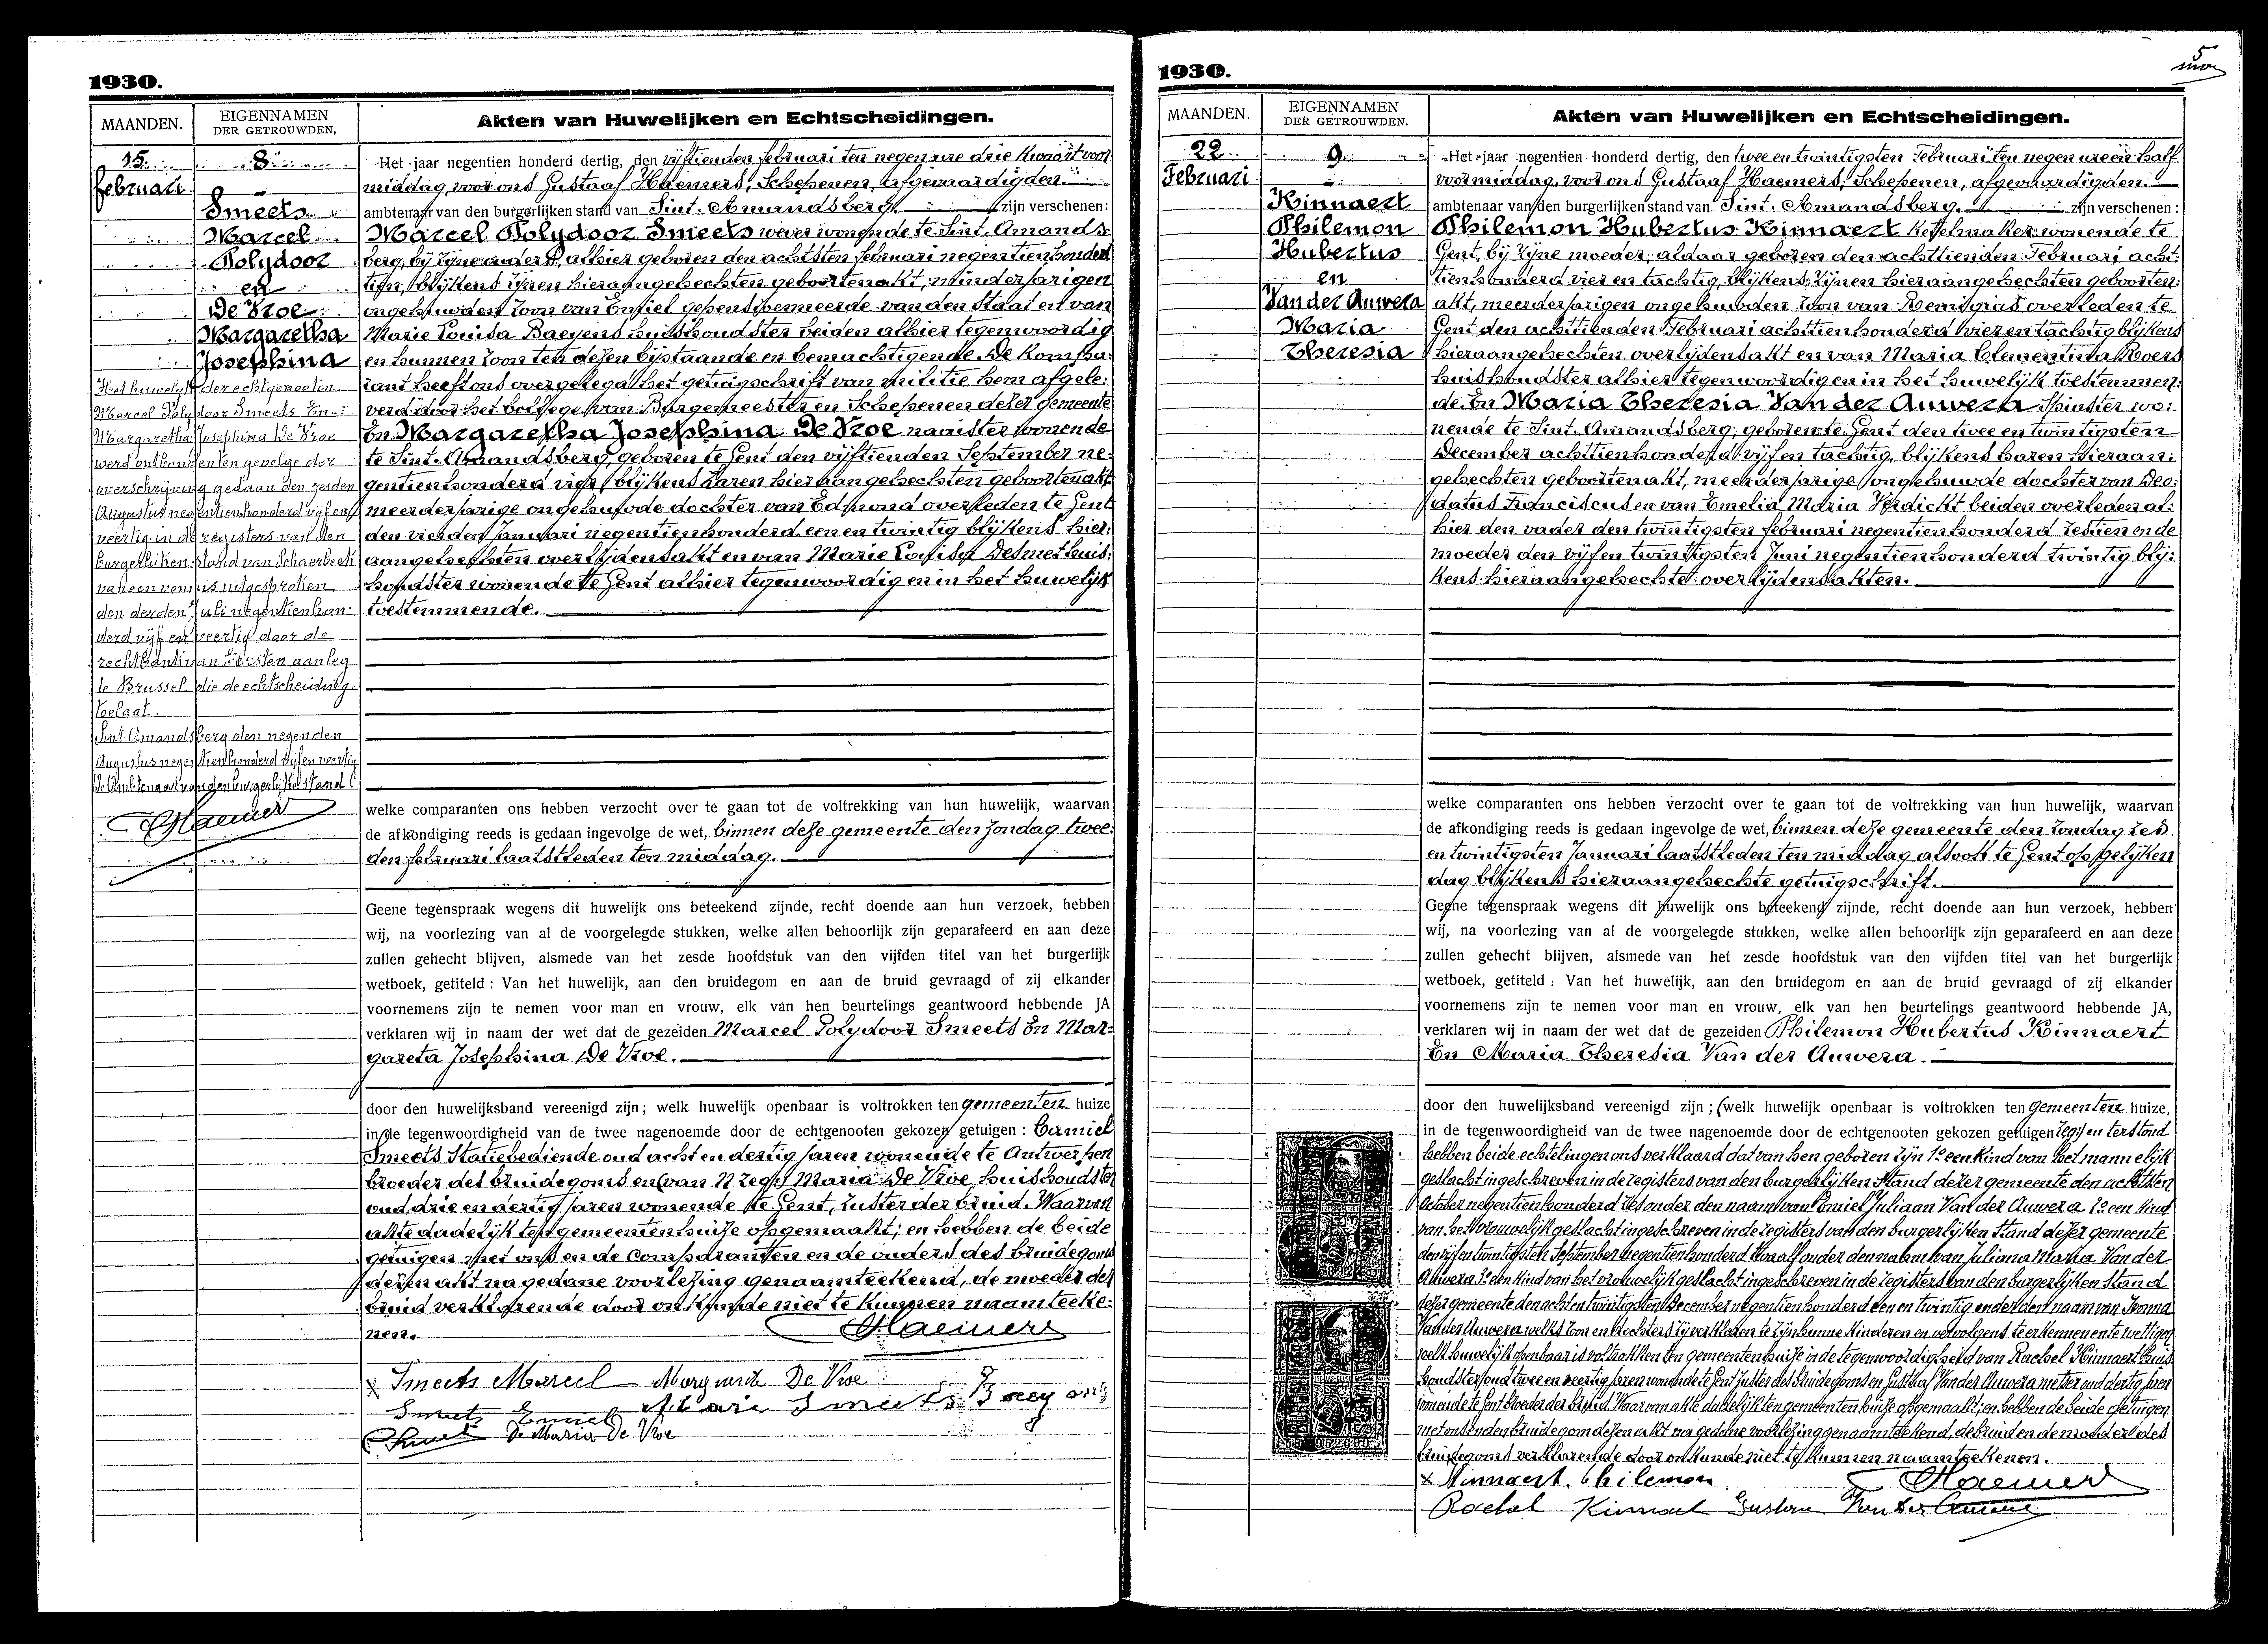 1930.
MAANDEN.
EIGENNAMEN
DER GETROUWDEN.
Akten van Huwelijken en Echtscheidingen.
15
februari
8
Smeets
Marcel
Polydoor
en
De Vroe
Margaretha
Josephina
Het huwelijk der echtgenooten
Marcel Polydoor Smeets En
Margaretha Josephina De Vroe
werd ontbonden ten gevolge der
overschrijving gedaan den zesden
Augustus negentienhonderd vijfen
veertig in de registers van den
burgerlijken stand van Schaerbeek
van een vonnis uitgesproken
den derden Juli negentienhon
derd vijf en veertig door de
rechtbank van Eersten aanleg
te Brussel die de echtscheiding
toelaat.
Sint Amandsberg den negenden
Augustus negentienhonderd vijfen veertig
De Ambtenaar van den burgerlijke stand
Haemers
Het jaar negentien honderd dertig, den vijftienden februari ten negen ure drie kwaart voor
middag, voor ons Gustaaf Haemers, Schepenen, afgevaardigden
ambtenaar van den burgerlijken stand van Sint. Amandsberg zijn verschenen:
Marcel Polydoor Smeets wever wonende te Sint. Amands:
berg, bij zijne ouders, alhier geboren den achtsten februari negentienhonderd
tien, blijkens zijnen hieraangehechten geboortenakt, minderjarigen
ongehuwden zoon van Emiel gepensioenneerde van den Staat en van
Marie Louisa Baeyens huishoudster beiden alhier tegenwoordig
en hunnen zoon ten dezen bijstaande en bemachtigende. De kompa:
rant heeft ons overgelegd het getuigschrift van militie hem afgele:
verd door het College van Burgemeester en Schepenen dezer gemeente
En Margaretha Josephina De Vroe naaister wonende
te Sint. Amandsberg, geboren te Gent den vijftienden September ne:
gentienhonderd vier, blijkens haren hieraangehechten geboortenakt
meerderjarige ongehuwde dochter van Edmond overleden te Gent
den vierden Januari negentienhonderd een en twintig blijkens hier:
aangehechten overlijdensakt en van Marie Louisa Desmet huis:
houdster wonende te Gent alhier tegenwoordig en in het huwelijk
toestemmende.
welke comparanten ons hebben verzocht over te gaan tot de voltrekking van hun huwelijk, waarvan
de afkondiging reeds is gedaan ingevolge de wet, binnen deze gemeente den zondag twee:
den februari laatstleden ten middag.
Geene tegenspraak wegens dit huwelijk ons beteekend zijnde, recht doende aan hun verzoek, hebben
wij, na voorlezing van al de voorgelegde stukken, welke allen behoorlijk zijn geparafeerd en aan deze
zullen gehecht blijven, alsmede van het zesde hoofdstuk van den vijfden titel van het burgerlijk
wetboek, getiteld : Van het huwelijk, aan den bruidegom en aan de bruid gevraagd of zij elkander
voornemens zijn te nemen voor man en vrouw, elk van hen beurtelings geantwoord hebbende JA
verklaren wij in naam der wet dat de gezeiden Marcel Polydoor Smeets En Mar-
gareta Josephina De Vroe.
door den huwelijksband vereenigd zijn; welk huwelijk openbaar is voltrokken ten gemeenten huize
in de tegenwoordigheid van de twee nagenoemde door de echtgenooten gekozen getuigen : Camiel
Smeets Statiebediende oud acht en dertig jaren wonende te Antwerpen
broeder des bruidegoms en (van N zegs) Maria De Vroe huishoudster
oud drie en dertig jaren wonende te Gent, zuster der bruid. Waarvan
akte dadelijk ten gemeentenhuize opgemaakt; en hebben de beide
getuigen met ons en de Comparanten en de ouders des bruidegoms
dezen akt na gedane voorlezing genaamteekend, de moeder der
bruid verklarende door onkunde niet te kunnen naamteeke:
nen.
Haemers
x Smeets Marcel Margareta De Vroe
Smeets Emiel
Smeets De Maria De Vroe
1930.
5
MAANDEN.
EIGENNAMEN
DER GETROUWDEN.
Akten van Huwelijken en Echtscheidingen.
22
Februari
9
Kinnaert
Philemon
Hubertus
en
Van der Auwera
Maria
Theresia
Het jaar negentien honderd dertig, den twee en twintigsten Februari ten negen ure en half
voormiddag, voor ons Gustaaf Haemers, Schepenen, afgevaardigden
ambtenaar van den burgerlijken stand van Sint. Amandsberg. zijn verschenen :
Philemon Hubertus Kinnaert Ketelmaker wonende te
Gent, bij zijne moeder, aldaar geboren den achttienden Februari acht:
tienhonderd vier en tachtig, blijkens zijnen hieraangehechten geboorten:
akt, meerderjarigen ongehuwden zoon van Remigius overleden te
Gent den achttienden Februari achttienhonderd vier en tachtig blijkens
hieraangehechten overlijdensakt en van Maria Clementina Roers
huishoudster alhier tegenwoordig en in het huwelijk toestemmen:
de. En Maria Theresia Van der Auwera Spinster wo:
nende te Sint. Amandsberg, geboren te Gent den twee en twintigsten
December achttienhonderd vijf en tachtig, blijkens haren hieraan:
gehechten geboortenakt, meerderjarige ongehuwde dochter van Deo:
datus Franciscus en van Emelia Maria Verdickt beiden overleden al:
hier den vader den twintigsten februari negentienhonderd zestien en de
moeder den vijf en twintigsten Juni negentienhonderd twintig blij:
kens hieraangehechte overlijdensakten.
welke comparanten ons hebben verzocht over te gaan tot de voltrekking van hun huwelijk, waarvan
de afkondiging reeds is gedaan ingevolge de wet, binnen deze gemeente den zondag zes
en twintigsten Januari laatstleden ten middag alsook te Gent op gelijken
dag blijkens hieraangehechte getuigschrift.
Geene tegenspraak wegens dit huwelijk ons beteekend zijnde, recht doende aan hun verzoek, hebben
wij, na voorlezing van al de voorgelegde stukken, welke allen behoorlijk zijn geparafeerd en aan deze
zullen gehecht blijven, alsmede van het zesde hoofdstuk van den vijfden titel van het burgerlijk
wetboek, getiteld : Van het huwelijk, aan den bruidegom en aan de bruid gevraagd of zij elkander
voornemens zijn te nemen voor man en vrouw, elk van hen beurtelings geantwoord hebbende JA,
verklaren wij in naam der wet dat de gezeiden Philemon Hubertus Kinnaert
En Maria Theresia Van der Auwera.
door den huwelijksband vereenigd zijn ; (welk huwelijk openbaar is voltrokken ten gemeenten huize,
in de tegenwoordigheid van de twee nagenoemde door de echtgenooten gekozen getuigen zegs) en terstond
hebben beide echtelingen ons verklaard dat van hen geboren zijn 1º een kind van het mannelijk
geslacht ingeschreven in de registers van den burgerlijken stand dezer gemeente den achtsten
October negentienhonderd zes onder den naam van Emiel Juliaan Van der Auwera 2º een kind
van het vrouwelijk geslacht ingeschreven in de registers van den burgerlijken stand dezer gemeente
den vijfentwintigsten September negentienhonderd twaalf onder den naam van Juliana Maria Van der
Auwera 3º een kind van het vrouwelijk geslacht ingeschreven in de registers van den burgerlijken stand
dezer gemeente den achtentwintigsten December negentienhonderd een en twintig onder den naam van Ivonna
Van der Auwera welks zoon en dochters zij verklaren te zijn hunne kinderen en vervolgens te erkennen en te wettigen
welk huwelijk openbaar is voltrokken ten gemeentenhuize in de tegenwoordigheid van Rachel Kinnaert huis
houdster oud twee en veertig jaren wonende te Gent zuster des bruidegoms en Gustaaf Van der Auwera metser oud dertig jaren
wonende te Gent broeder der bruid. Waarvan akte dadelijk ten gemeentenhuize opgemaakt; en hebben de beide getuigen
met ons en den bruidegom dezen akt na gedane voorlezing genaamteekend, de bruid en de moeder des
bruidegoms verklarende door onkunde niet te kunnen naamteekenen.
x Kinnaert. Philemon Haemers
Rachel Kinnaert Gustaaf Van der Auwera